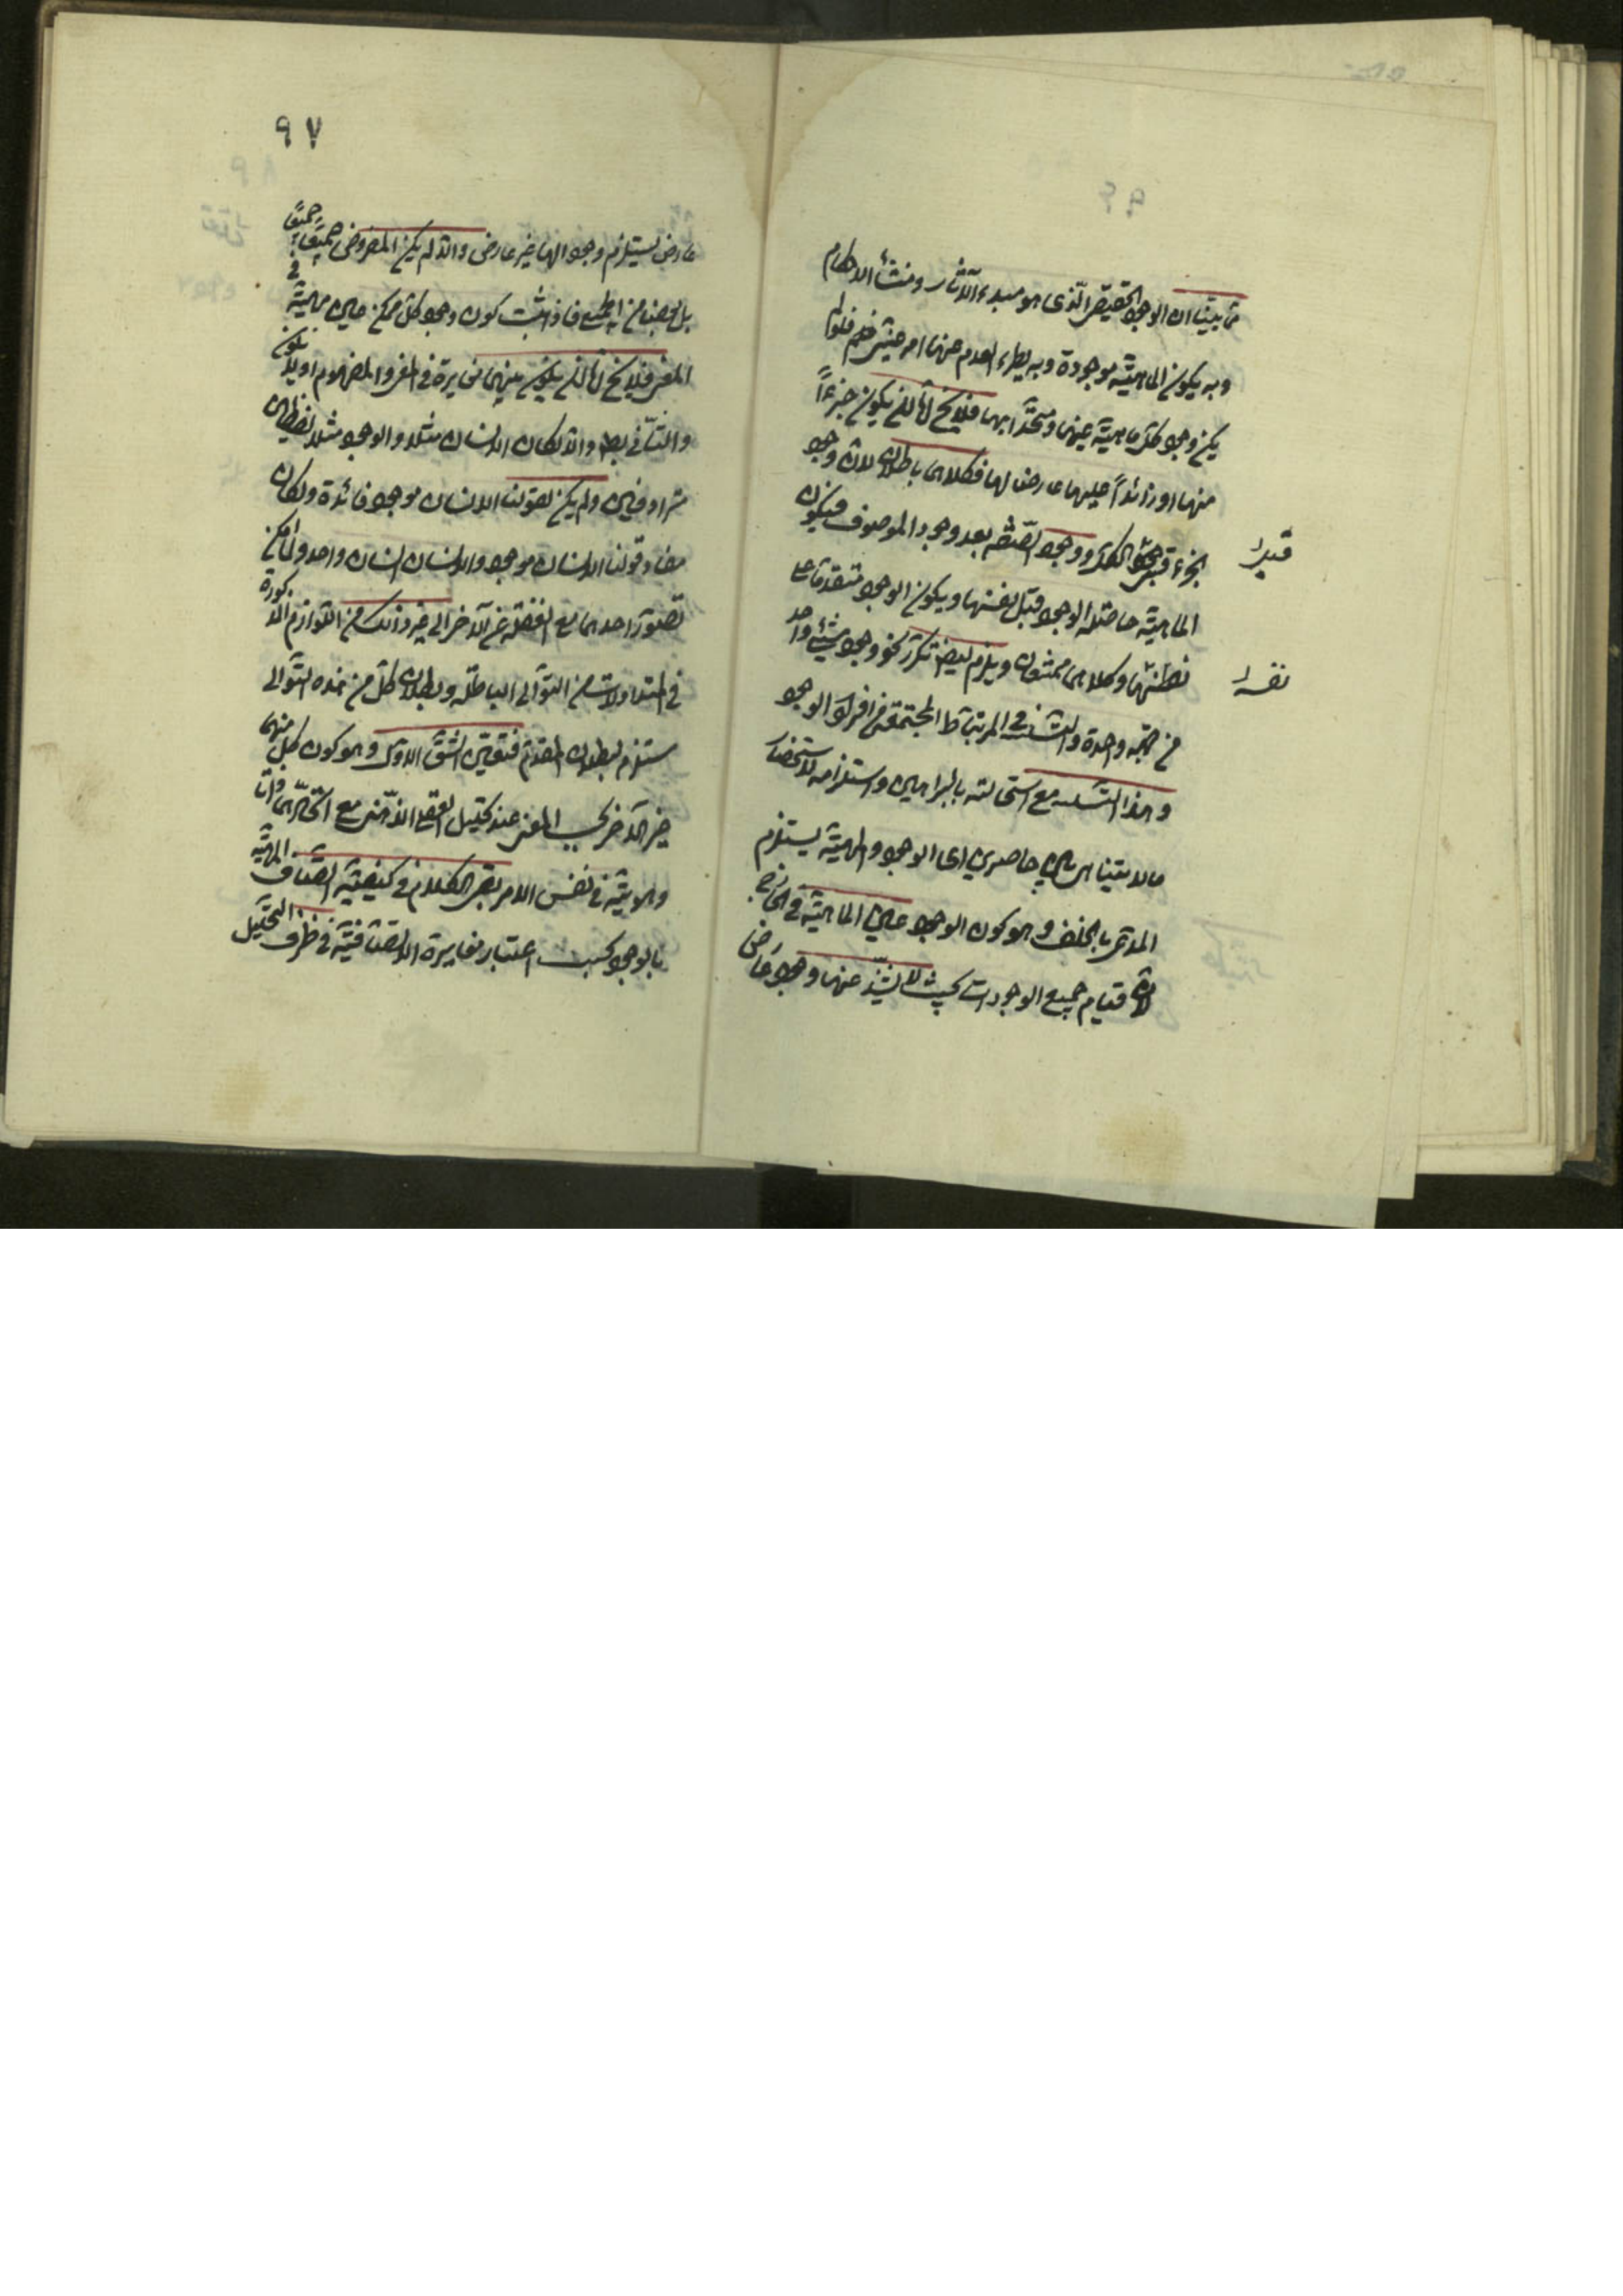 ثم بينا ان الوجود الحقيقى الذى هو مبدء الآثار ومنشأ الاحكام
وبه يكون الماهية موجودة وبه يطرء العدم عنها امر عينى فلو لم
يكن وجود كل ماهية عينها ومتحدا بها فلا يخ اما ان يكون جزءاً
منها او زائداً عليها عارضا لها فكلاهما باطلان لان وجود
الجزء قبل وجود الكل ووجود الصفة بعد وجود الموصوف فيكون
الماهية حاصلة الوجود قبل نفسها ويكون الوجود متقدما على
نفسها وكلاهما ممتنعان ويلزم ايضا تكرر نحو وجود شىء واحد
من جهة واحدة والتسلسل فى المرتبات المجتمعة من افراد الوجود
وهذا التسلسل مع استحالته بالبراهين واستلزامه لانحصار
ما لا يتناهى بين حاصرين اى الوجود والمهية يستلزم
المدعى بالخلف وهو كون الوجود عين الماهية فى الخارج
لان قيام جميع الوجودات بحيث لا يشذ عنها وجود عارض
قبل
نفسه
٩٧
عارض يستلزم وجودا لها غير عارض والا لم يكن المفروض جميعاً
جميعا
بل بعضا من الجميع فاذا ثبت كون وجود كل ممكن عين ماهيته فى
العين فلا يخ اما ان يكون بينهما مغايرة فى المعنى والمفهوم او لا يكون
والثانى بط والا لكان الانسان مثلا والوجود مثلا لفظين
مترادفين ولم يكن لقولنا الانسان موجود فائدة ولكان
مفاد قولنا الانسان موجود والانسان انسان واحدا ولما امكن
تصور احدهما مع الغفلة عن الآخر الى غير ذلك من اللوازم المذكورة
فى المتداولات من التوالى الباطلة وبطلان كل من هذه التوالى
مستلزم لبطلان المقدم فتعين الشق الاول وهو كون كل منهما
غير الآخر بحسب المعنى عند تحليل العقل الذهنى مع اتحادهما ذاتا
وهوية فى نفس الامر بقى الكلام فى كيفية اتصاف المهية
بالوجود بحسب اعتبار مغايرة الاتصافية فى ظرف التحليل